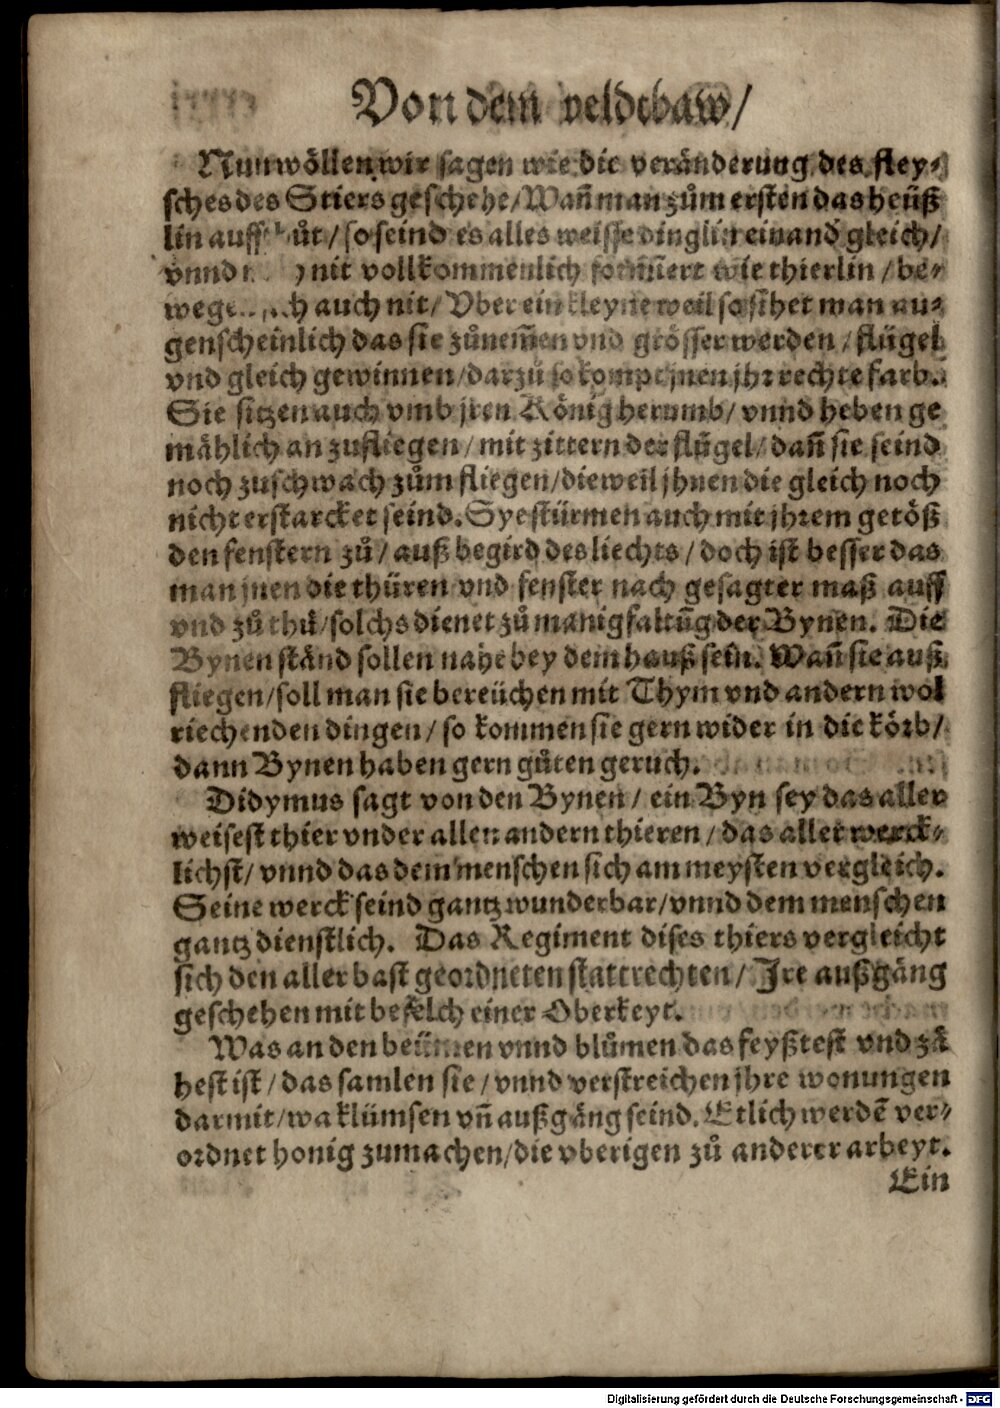 Von dem veldtbaw/
Nun wöllen wir sagen wie die veränderung des fley⸗
sches des Stiers geschehe/ Wañ man zům ersten das heüß
lin auff / so seind es alles weisse dinglin einand gleich/
vnnd nit vollkommenlich formiert wie thierlin / be⸗
auch nit/ Vber ein kleyne weil so sihet man au⸗
genscheinlich das sie zůnem̃en vnd grösser werden / flügel
vnd gleich gewinnen/ darzů so kompt jnen jhr rechte farb.
Sie sitzen auch vmb jren König herumb/ vnnd heben ge
mählich an zufliegen / mit zittern der flügel/ dañ sie seind
noch zuschwach zům fliegen/ dieweil jhnen die gleich noch
nicht erstarcket seind. Sye stürmen auch mit jhrem getöß
den fenstern zů / auß begird des liechts / doch ist besser das
man jnen die thüren vnd fenster nach gesagter maß auff
vnd zů thů/ solchs dienet zů manigfaltũg der Bynen. Die
Bynen ständ sollen nahe bey dem hauß sein. Wañ sie auß
fliegen/ soll man sie bereüchen mit Thym vnd andern wol
riechenden dingen / so kommen sie gern wider in die körb/
dann Bynen haben gern gůten geruch.
Didymus sagt von den Bynen / ein Byn sey das aller
weisest thier vnder allen andern thieren / das aller werck⸗
lichst/ vnnd das dem menschen sich am meysten vergleich.
Seine werck seind gantz wunderbar/ vnnd dem menschen
gantz dienstlich. Das Regiment dises thiers vergleicht
sich den aller bast geordneten stattrechten / Ire außgäng
geschehen mit befelch einer Oberkeyt.
Was an den beümen vnnd blůmen das feyßtest vnd zä
hest ist / das samlen sie / vnnd verstreichen jhre wonungen
darmit/ wa klümsen vñ außgäng seind. Etlich werdẽ ver⸗
ordnet honig zumachen/ die vberigen zů anderer arbeyt.
Ein
Digitalisierung gefördert durch die Deutsche Forschungsgemeinschaft - DFG